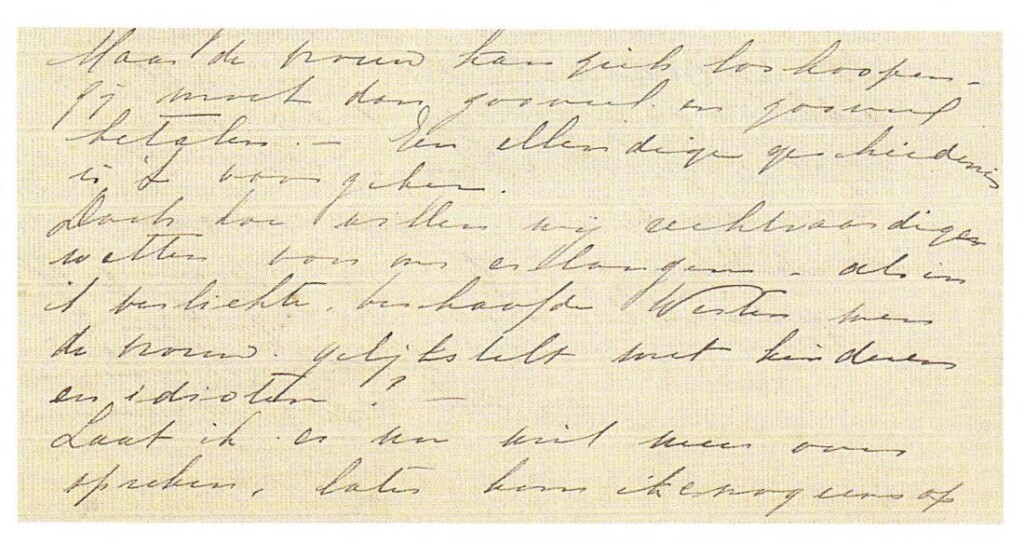 Maar de vrouw kan zich loskoopen -
zij moet dan zooveel en zooveel
betalen. - Een ellendige geschiedenis
is 't voor
Doch hoe willen wij rechtvaardige
wetten voor ons erlangen - als in
't verlichte, beschaafde Westen men
de vrouw gelijkstelt met kinderen
en idioten? -
Laat ik er nu niet meer over
spreken, later kom ik er nog eens op